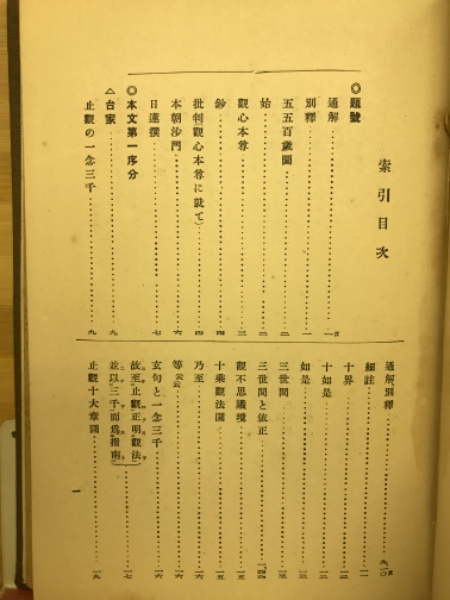 索引目次
◎題號
通解……一頁
別釋……一
五五百歳圖……二
始……二
觀心本尊……三
鈔……四
批判觀心本尊に就て)……四
本朝沙門……六
日蓮撰……七
◎本文第一序分
△台家……九
止觀の一念三千……九
通解、別釋……九、一〇頁
細註……一一
十界……一二
十如是……一二
如是……一三
三世間……一三
三世間と依正……
觀不思議境……一五
十乘觀法圖……一五
乃至……一六
等云云……一六
玄句と一念三千……一六
故至止觀正明觀法
並以三千而爲指南……一七
止觀十大章圖……一九
一